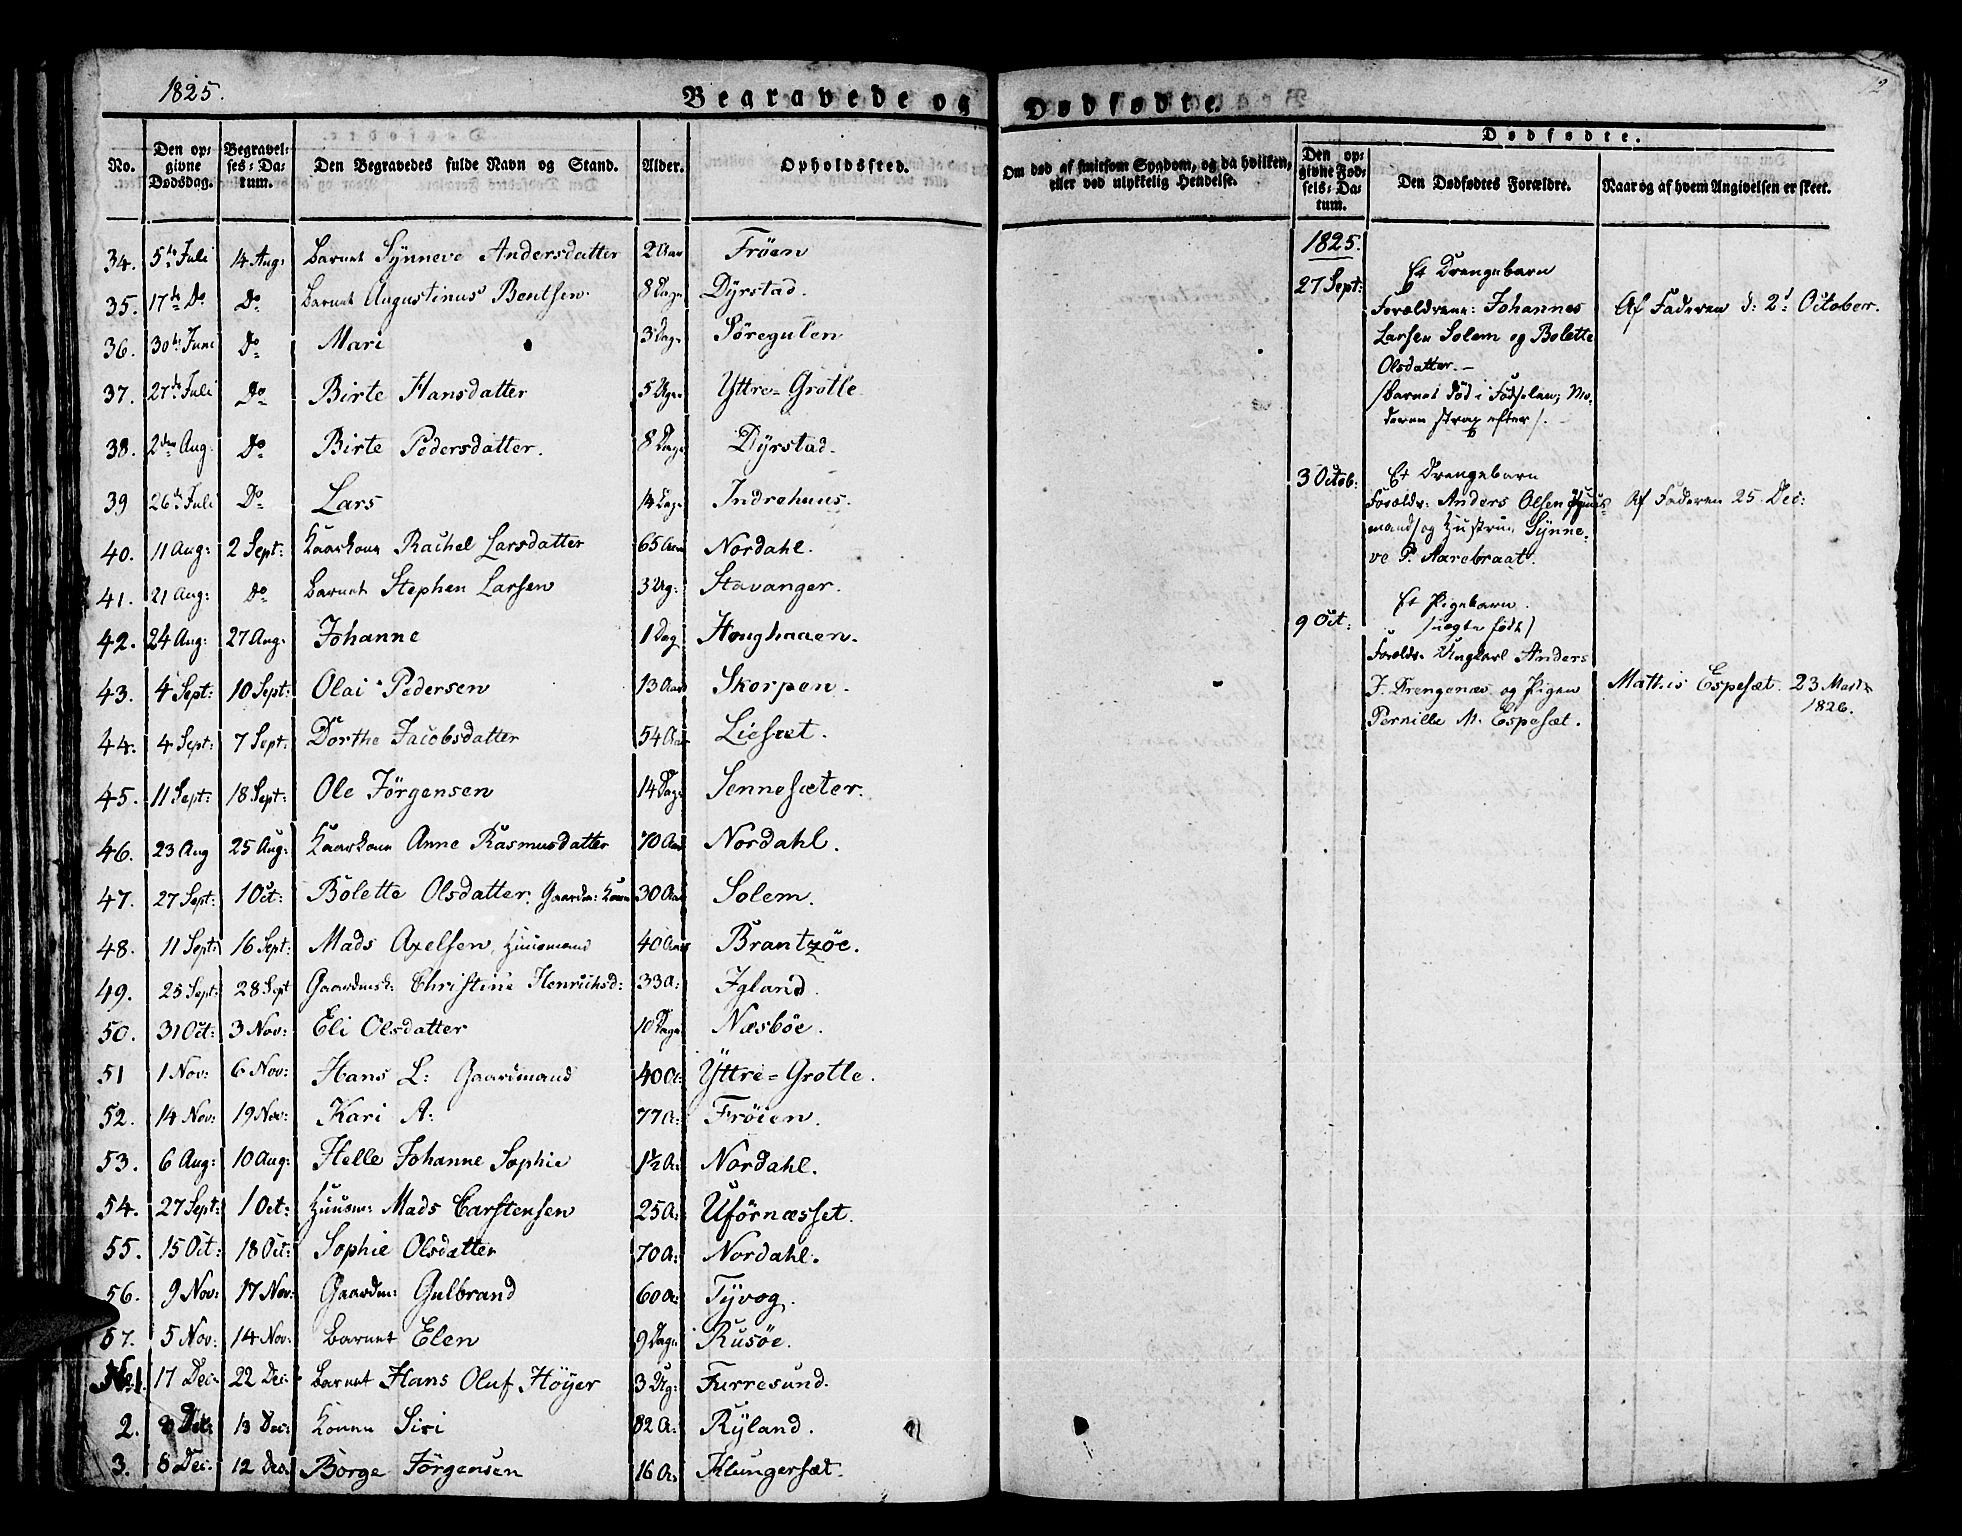 1825.
Begravede og
No.
Den opgivne Dødsdag.
Begravelses-Datum.
Den Begravedes fulde Navn og Stand.
Alder.
Opholdssted.
34. 5te Juli 14 Aug: Barnet Synneve Andersdatter 2 Aar Fröen
35. 17de Do Do Barnet Augustinus Bentsen. 8 Dage Dyrstad.
36. 30te Juni Do Mari 3 Dage Söregulen
37. 27de Juli Do Birte Hansdatter 5 Uger Yttre-Grotle
38. 2den Aug: Do Birte Pedersdatter. 8 Dage Dyrstad.
39 26de Juli Do Lars 14 Dage Indrehuus.
40. 11 Aug: 2 Sept: Kaarkone Rachel Larsdatter 65 Aar Nordahl.
41. 21 Aug: Do Barnet Stephen Larsen 3 Ug: Stavanger.
42. 24 Aug: 27 Aug: Johanne 1 Dag Houghaaen.
43. 4 Sept: 10 Sept: Olai Pedersen 13 Aar Skorpen.
44. 4 Sept: 7 Sept: Dorthe Jacobsdatter 54 Aar Liesæt.
45. 11 Sept: 18 Sept: Ole Jörgensen 14 Dag: Sennesæter.
46. 23 Aug 25 Aug: Kaarkone Anne Rasmusdatter 70 Aar Nordahl.
47. 27 Sept: 1 Oct: Bolette Olsdatter, Gaardm: Kone 30 Aar Solem.
48. 11 Sept: 16 Sept: Mads Axelsen, Huusmand 40 Aar Brantzöe.
49. 25 Sept: 28 Sept Gaardmsk: Christine Henrichsd: 33 A: Igland.
50. 31 Oct: 3 Nov: Eli Olsdatter 10 Dage Næsböe.
51 1 Nov: 6 Nov: Hans L: Gaardmand 40 A: Yttre-Grotle.
52. 14 Nov: 19 Nov: Kari A: 77 A: Fröien.
53. 6 Aug: 10 Aug: Helle Johanne Sophie 1½ A: Nordahl.
54. 27 Sept: 1 Oct: Huusm: Mads Carstensen 25 A: Uförnæsset.
55. 15 Oct: 18 Oct: Sophie Olsdatter 70 A: Nordahl.
56. 9 Nov: 17 Nov: Gaardm: Gulbrand 60 A: Tyvog.
57. 5 Nov: 14 Nov: Barnet Elen 9 Dage Rusöe.
No 1. 17 Dec. 22 Dec. Barnet Hans Oluf Höyer 3 Ug: Furresund.
2. 8 Dec: 13 Dec: Konen Siri 82 A: Ryland.
3. 8 Dec. 12 Dec. Börge Jörgensen 16 A: Klungersæt.
12
Dødfødte.
Om død af smitsom Sygdom, og da hvilken,
eller ved ulykkelig Hendelse.
Dødfødte.
Den opgivne Fødsels-Datum.
Den Dødfødtes Forældre.
Naar og af hvem Angivelsen er skeet.
1825.
27 Sept: Et Drengebarn
Forældrene: Johannes
Larsen Solem og Bolette
Olsdatter.-
/Barnet död i Födselen; Mo-
deren strax efter/.
Af Faderen d: 2d October.
3 Octob: Et Drengebarn
Foræld: Anders Olsen Huus-
mand/ og Hustrue Synne-
ve P. Aarebraat.
Af Faderen 25 Dec:
9 Oct: Et Pigebarn.
/uægte födt/
Foræld: Ungkarl Anders
J. Drengenæs og Pigen
Pernille M. Espesæt.
Mathis Espesæt. 23 Marts
1826.